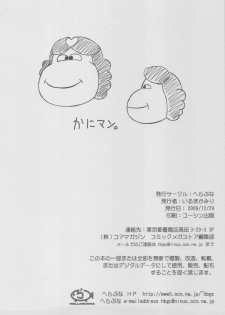 かにマン。
発行サークル：へらぶな
発行者：いるまかみり
発行日：2009/12/29
印刷：コーシン出版
連絡先：東京都豊島区高田3-29-3 5F
(株)コアマガジン コミックメガストア編集部
メールでのご連絡は hbgc@ninus.ocn.ne.jp まで
この本の一部または全部を無断で複製、改造、転載、
またはデジタルデータにして使用、販売、配布
することを固く禁じます。
へらぶな HP
へらぶな e-mailaddress hbgc@ninus.ocn.ne.jp